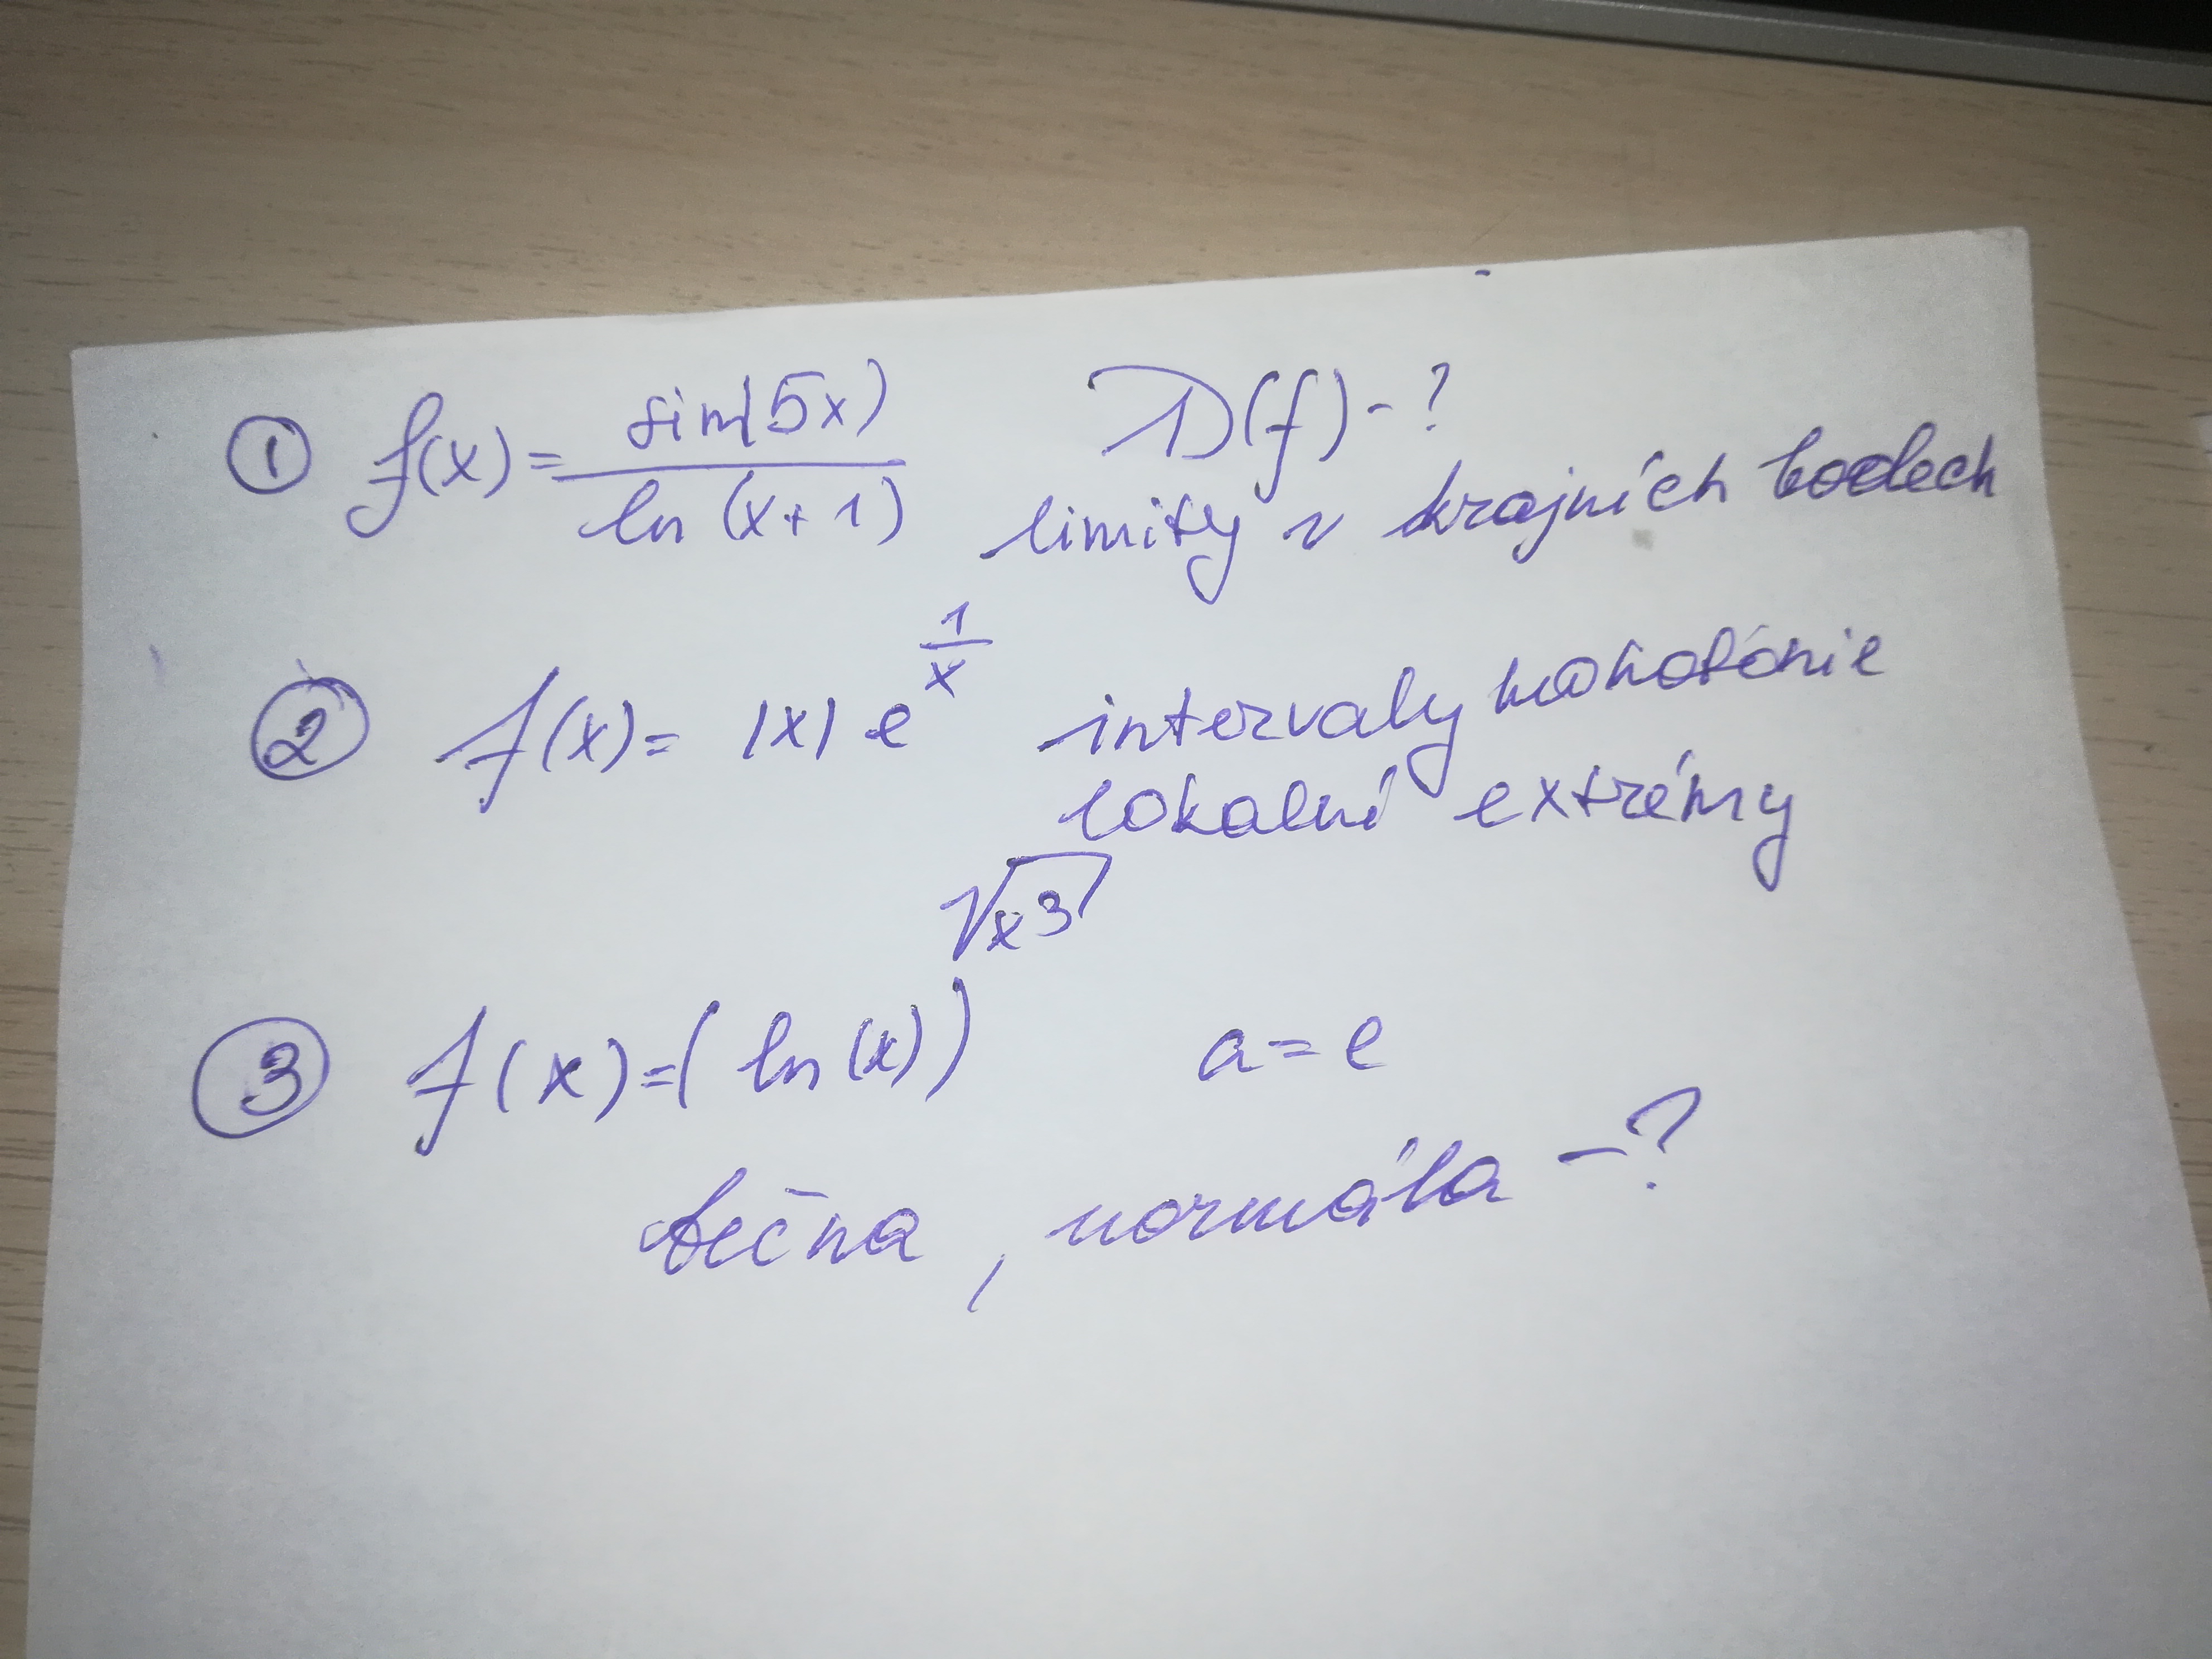 ① f(x) = sin(5x) / ln(x+1) D(f) - ?
limity v krajních bodech
② f(x) = |x| e^(1/x) intervaly monotónie
lokalní extrémy
③ f(x) = (ln(x))^√x3 a = e
tečna, normála - ?